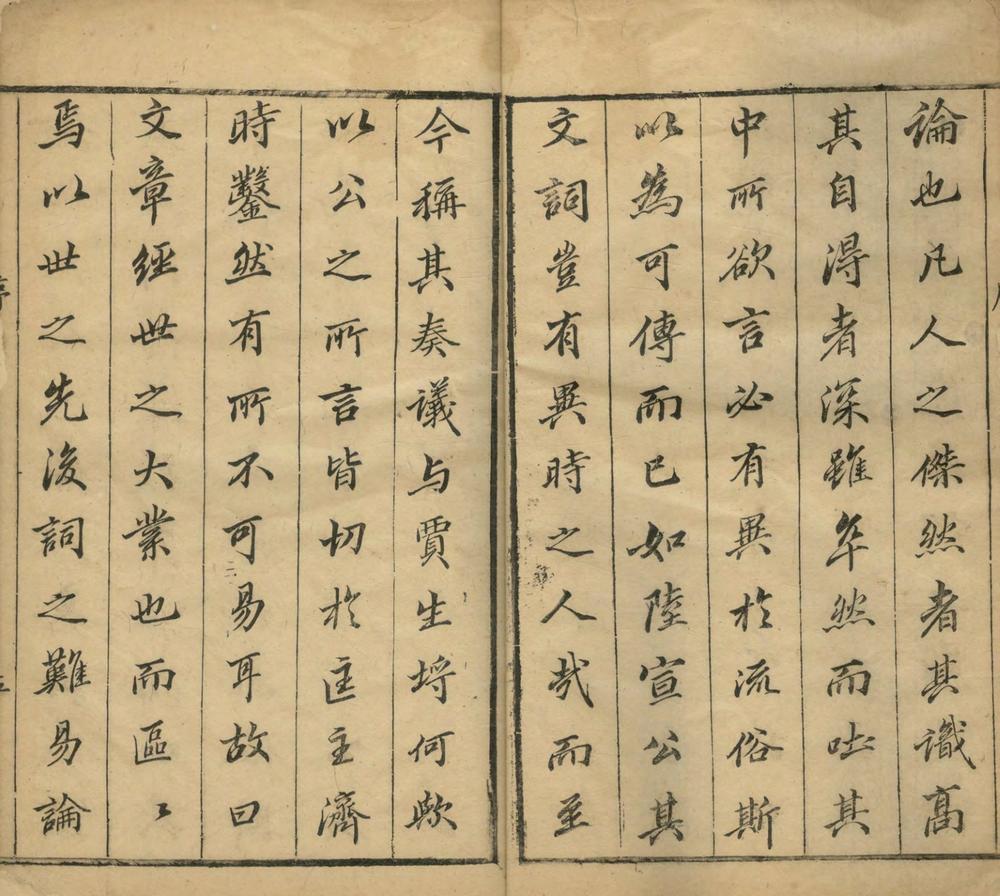 論也凡人之傑然者其識高
其自得者深雖卒然而吐其
中所欲言必有異於流俗斯
以為可傳而已如陸宣公其
文詞豈有異時之人哉而至
今稱其奏議与賈生埒何歟
以公之所言皆切於匡主濟
時鑿然有所不可易耳故曰
文章經世之大業也而區〻
焉以世之先後詞之難易論
序